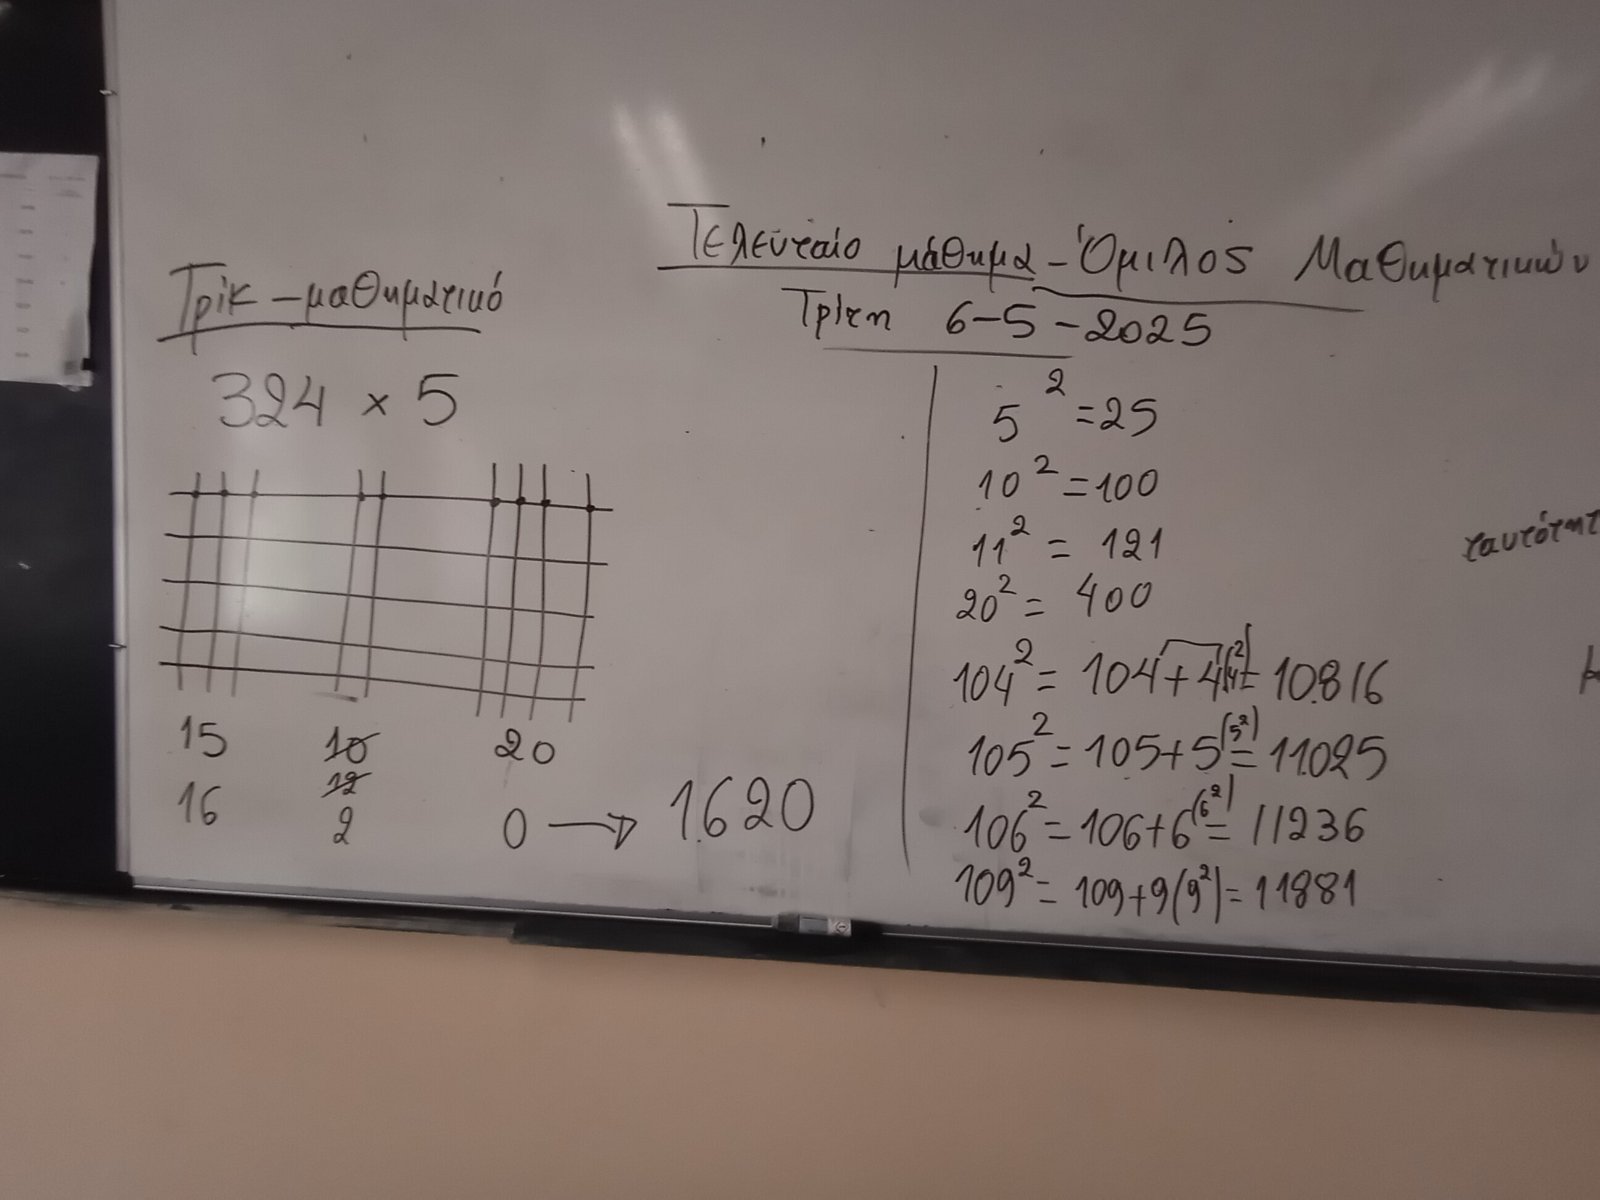 Τελευταίο μάθημα - Όμιλος Μαθηματικών
Τρίτη 6-5-2025
Τρίκ - μαθηματικό
324 × 5
15 10 20
16 12
2 0 → 1.620
5² = 25
10² = 100
11² = 121
20² = 400
104² = 104+4(4²) = 10.816
105² = 105+5(5²) = 11.025
106² = 106+6(6²) = 11236
109² = 109+9(9²) = 11881